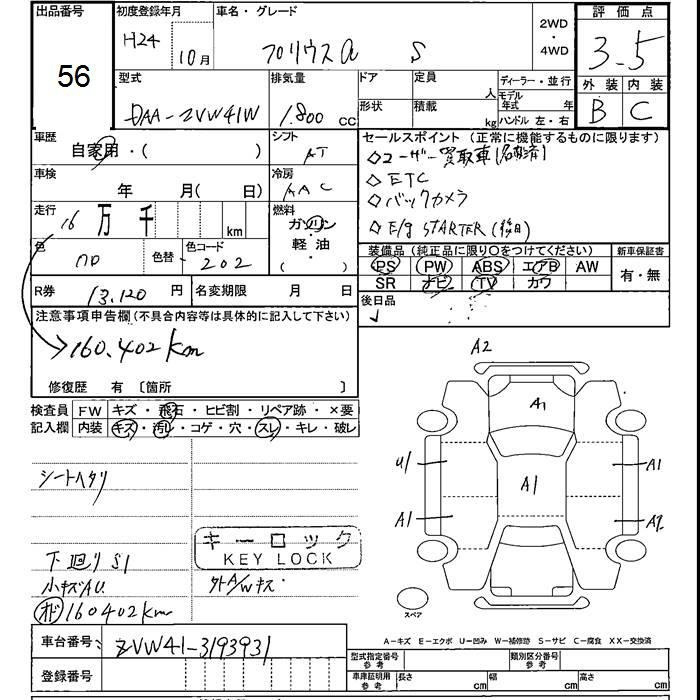 出品番号 初度登録年月 車名・グレード 2WD・4WD 評価点
56 H24 10月 プリウスα S 3.5
型式 排気量 ドア 定員 人 ディーラー・並行 外装 内装
DAA-ZVW41W 1.800 CC 形状 積載 kg モデル年式 年 ハンドル 左・右 B C
車歴 自家用・( ) シフト AT セールスポイント (正常に機能するものに限ります)
◇ユーザー買取車
車検 年 月( 日) 冷房 AAC ◇ETC
◇バックカメラ
走行 16 万 千 km 燃料 ガソリン 軽・油 ( )
◇E/g STARTER(後日)
色 色替 色コード 202
装備品 (純正品に限り〇をつけてください) 新車保証書
PS PW ABS エアB AW 有・無
SR ナビ TV カワ
R券 13,120 円 名変期限 月 日 後日品
注意事項申告欄(不具合内容等は具体的に記入して下さい)
160.402km
修復歴 有 〔箇所 〕
検査員記入欄 FW キズ・飛石・ヒビ割・リペア跡・×要
内装 キズ・汚れ・コゲ・穴・スレ・キレ・破レ
シートヘタリ
キーロック
KEY LOCK
下廻りS1
小キズAU 外A/Wキズ
オド160402km
A2
A1
U1 A1
A1
A1 A2
スペア
A-キズ E-エクボ U-凹み W-補修跡 S-サビ C-腐食 XX-交換済
車台番号 ZVW41-3193931
型式指定番号 参考 類別区分番号 参考
登録番号 車庫証明用 参考 長さ cm 幅 cm 高さ cm